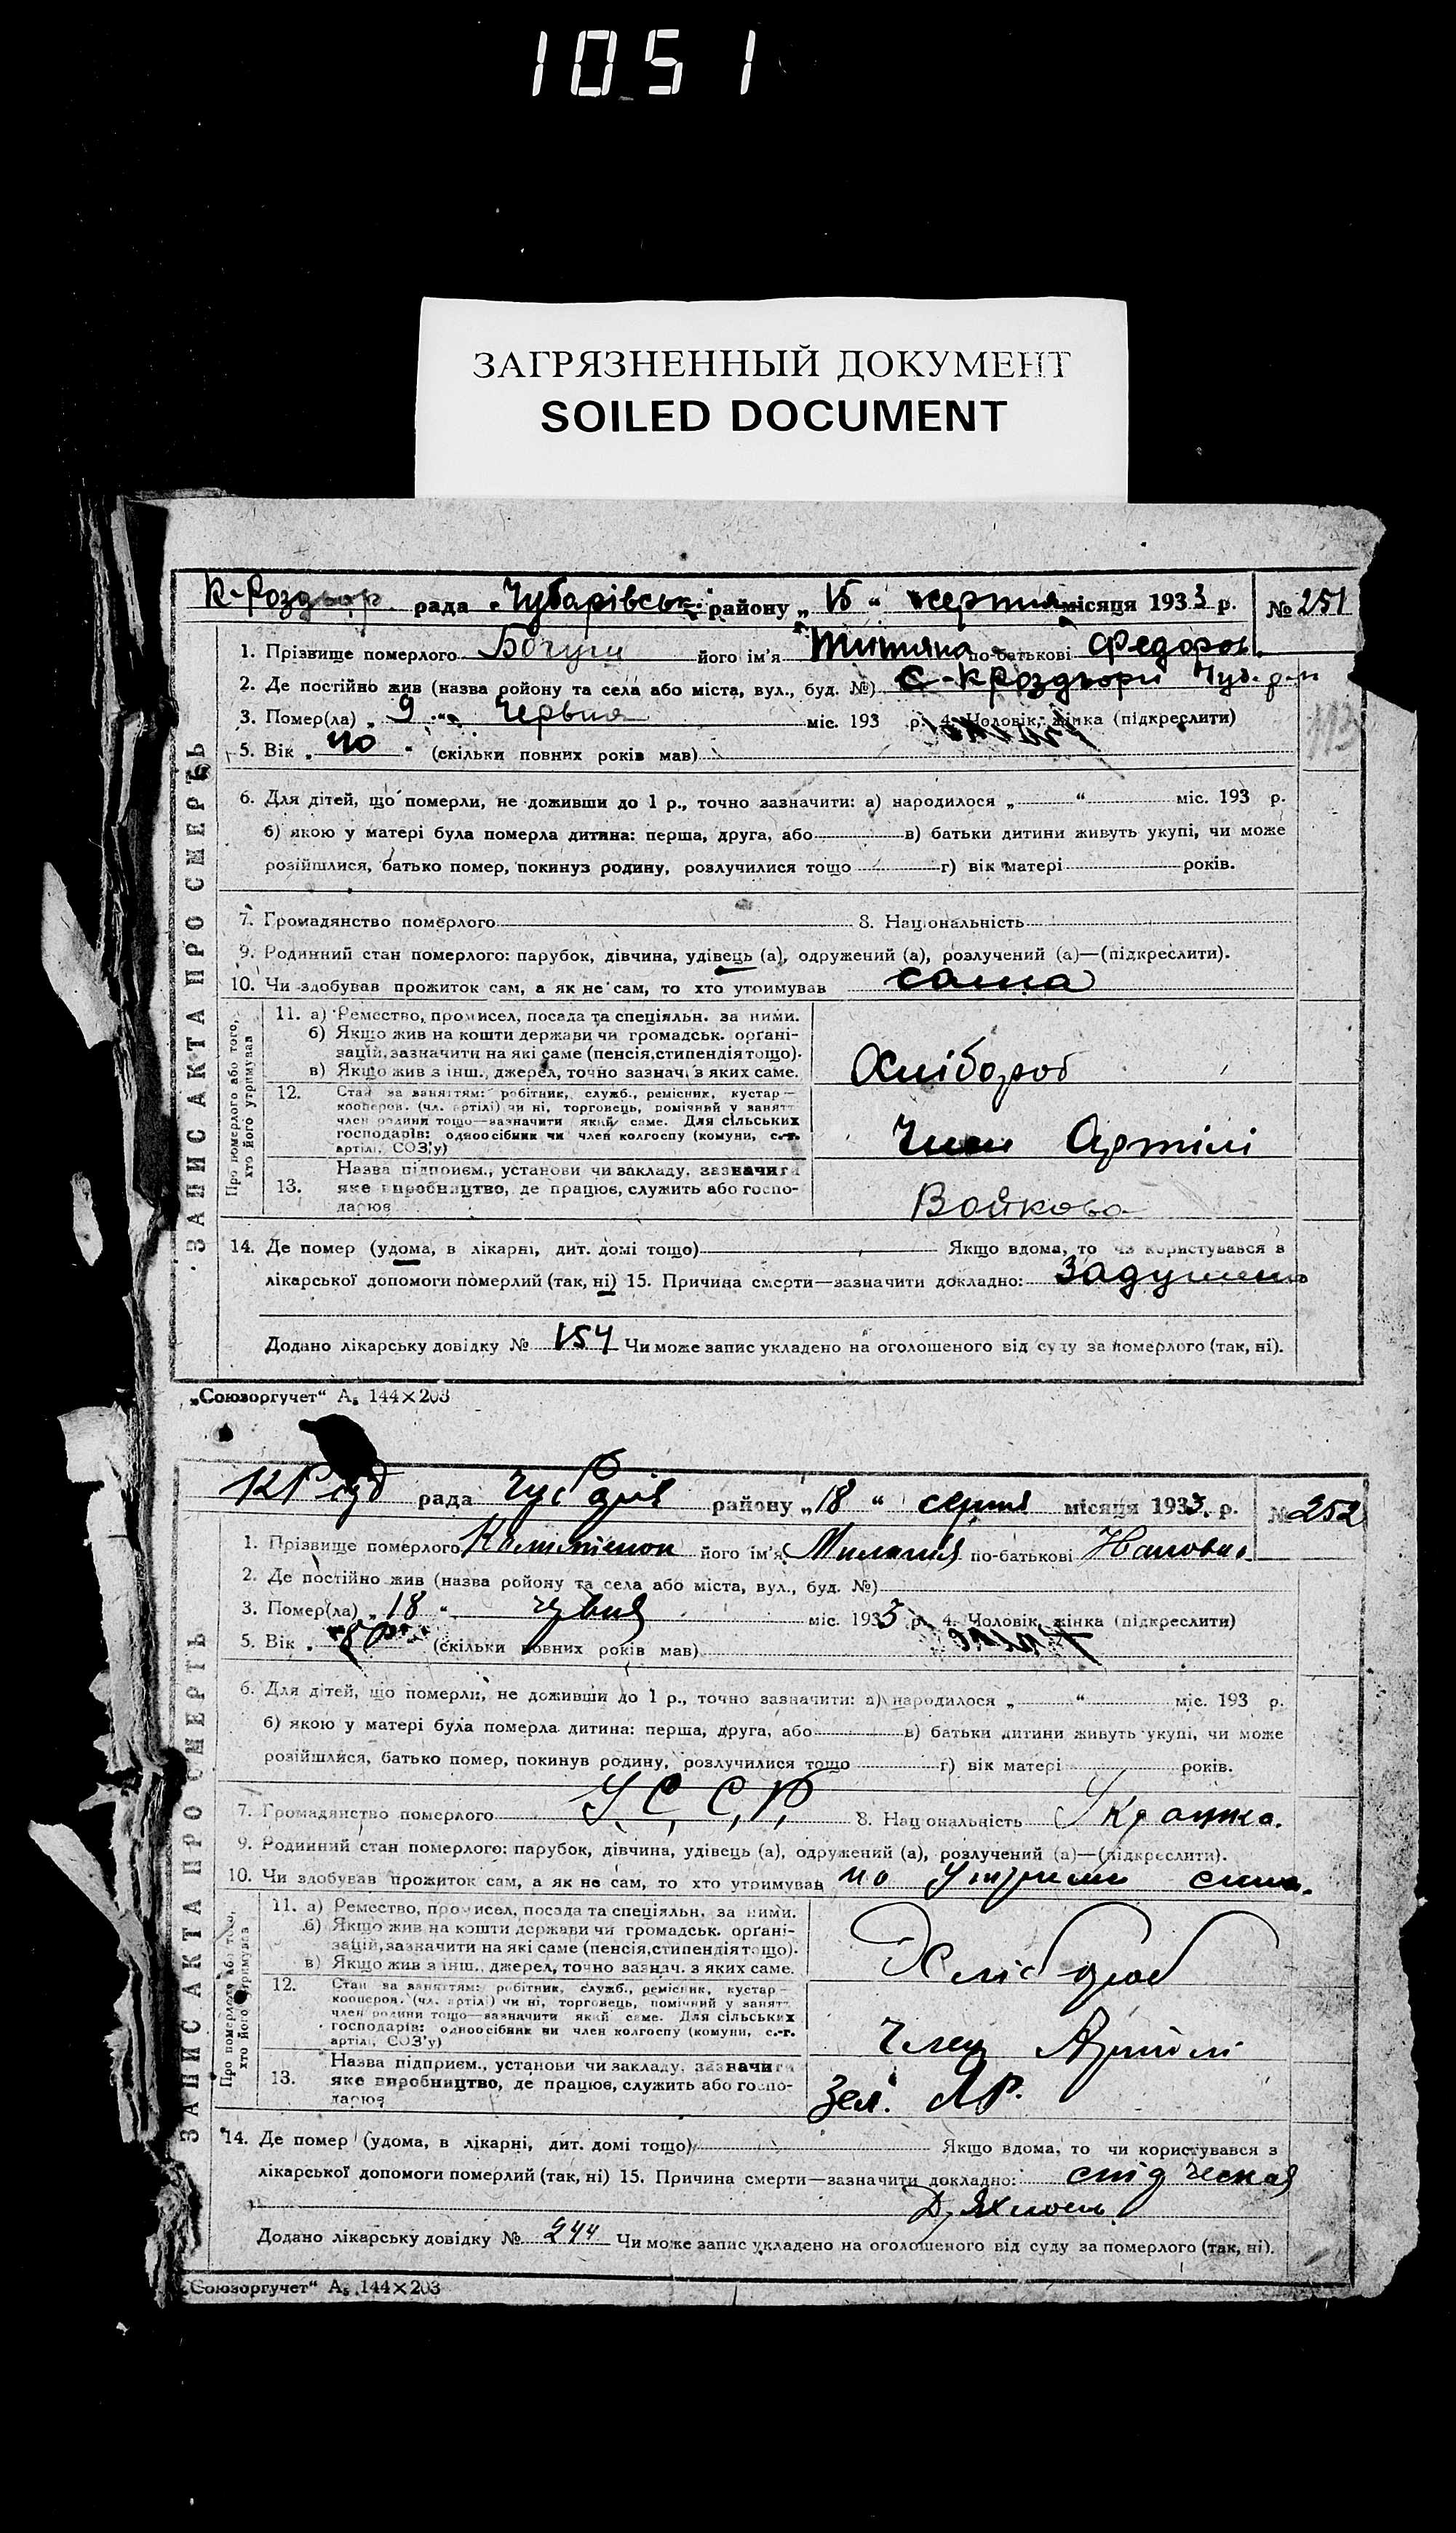 1051
ЗАГРЯЗНЕННЫЙ ДОКУМЕНТ
SOILED DOCUMENT
ЗАПИС АКТА ПРО СМЕРТЬ
К-Роздьор рада Чубарівськ. району „ 15 “ серпня місяця 1933 р. № 251
1. Прізвище померлого його ім'я Титяна по-батькові Федоров.
2. Де постійно жив (назва ройону та села або міста, вул., буд. №) с-К Роздьори Чуб. р-н
3. Помер(ла) „ 9 “ Червня міс. 193 р. 4. Чоловік, жінка (підкреслити)
113
5. Вік „ 40 “ (скільки повних років мав)
6. Для дітей, що померли, не доживши до 1 р., точно зазначити: а) народилося „ “ міс. 193 р.
б) якою у матері була померла дитина: перша, друга, або в) батьки дитини живуть укупі, чи може
розійшлися, батько помер, покинув родину, розлучилися тощо г) вік матері років.
7. Громадянство померлого 8. Національність
9. Родинний стан померлого: парубок, дівчина, удівець (а), одружений (а), розлучений (а)—(підкреслити).
10. Чи здобував прожиток сам, а як не сам, то хто утримував сама
Про померлого або того, хто його утримував
11. а) Ремество, промисел, посада та спеціяльн. за ними.
б) Якщо жив на кошти держави чи громадськ. орґані-
зацій, зазначити на які саме (пенсія, стипендія тощо).
в) Якщо жив з інш., джерел, точно зазнач. з яких саме.
Хлібороб
12. Стан за заняттям: робітник, служб., ремісник, кустар—
кооперов. (чл. артілі) чи ні, торговець, помічний у занятт
член родини тощо—зазначити який саме. Для сільських
господарів: одноосібник чи член колгоспу (комуни, с.-г.
артілі, СОЗ'у)
Член Артілі
13. Назва підприєм., установи чи закладу, зазначити
яке виробництво, де працює, служить або госпо-
дарює
Войкова
14. Де помер (удома, в лікарні, дит. домі тощо) Якщо вдома, то чи користувався з
лікарської допомоги померлий (так, ні) 15. Причина смерти—зазначити докладно:
Додано лікарську довідку № 154 Чи може запис укладено на оголошеного від суду за померлого (так, ні).
„Союзоргучет“ А₅ 144×203
ЗАПИС АКТА ПРО СМЕРТЬ
рада району „ 18 “ серпня місяця 1933. р. № 252
1. Прізвище померлого його ім'я по-батькові
2. Де постійно жив (назва ройону та села або міста, вул., буд. №)
3. Помер(ла) „ 18 “ міс. 1933 р. 4. Чоловік, жінка (підкреслити)
5. Вік „ “ (скільки повних років мав)
6. Для дітей, що померли, не доживши до 1 р., точно зазначити: а) народилося „ “ міс. 193 р.
б) якою у матері була померла дитина: перша, друга, або в) батьки дитини живуть укупі, чи може
розійшлися, батько помер, покинув родину, розлучилися тощо г) вік матері років.
7. Громадянство померлого У, С, С, Р, 8. Національність
9. Родинний стан померлого: парубок, дівчина, удівець (а), одружений (а), розлучений (а)—(підкреслити).
10. Чи здобував прожиток сам, а як не сам, то хто утримував на
Про померлого або того, хто його утримував
11. а) Ремество, промисел, посада та спеціяльн. за ними.
б) Якщо жив на кошти держави чи громадськ. орґані-
зацій, зазначити на які саме (пенсія, стипендія тощо).
в) Якщо жив з інш., джерел, точно зазнач. з яких саме.
Хлібороб
12. Стан за заняттям: робітник, служб., ремісник, кустар—
кооперов. (чл. артілі) чи ні, торговець, помічний у занятт
член родини тощо—зазначити який саме. Для сільських
господарів: одноосібник чи член колгоспу (комуни, с.-г.
артілі, СОЗ'у)
Член Артілі
13. Назва підприєм., установи чи закладу, зазначити
яке виробництво, де працює, служить або госпо-
дарює
Зел. Яр.
14. Де помер (удома, в лікарні, дит. домі тощо) Якщо вдома, то чи користувався з
лікарської допомоги померлий (так, ні) 15. Причина смерти—зазначити докладно:
Додано лікарську довідку № 244 Чи може запис укладено на оголошеного від суду за померлого (так, ні).
„Союзоргучет“ А₅ 144×203